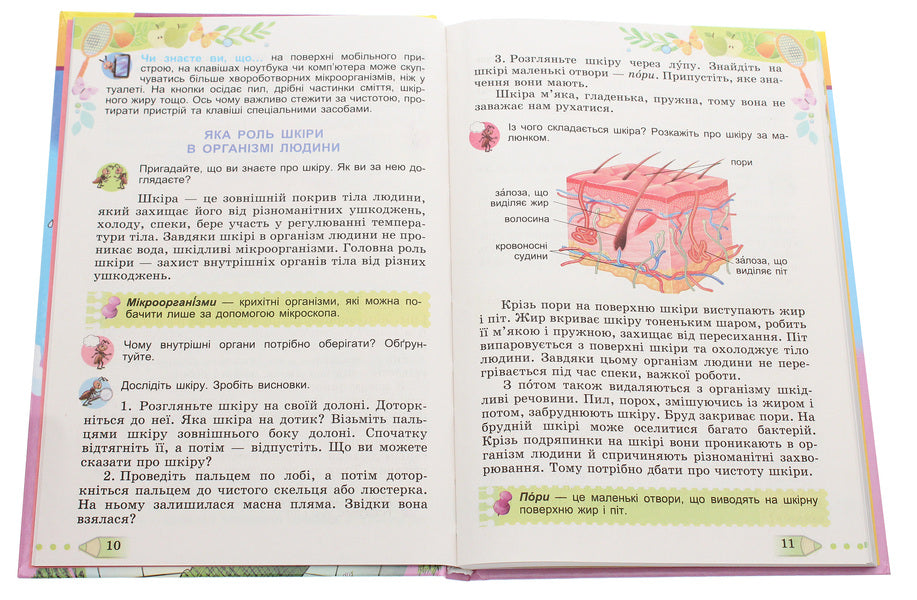 Чи знаєте ви, що... на поверхні мобільного при-
строю, на клавішах ноутбука чи комп'ютера може скуп-
чуватись більше хвороботворних мікроорганізмів, ніж у
туалеті. На кнопки осідає пил, дрібні частинки сміття, шкір-
ного жиру тощо. Ось чому важливо стежити за чистотою, про-
тирати пристрій та клавіші спеціальними засобами.
ЯКА РОЛЬ ШКІРИ
В ОРГАНІЗМІ ЛЮДИНИ
Пригадайте, що ви знаєте про шкіру. Як ви за нею до-
глядаєте?
Шкіра — це зовнішній покрив тіла людини,
який захищає його від різноманітних ушкоджень,
холоду, спеки, бере участь у регулюванні темпера-
тури тіла. Завдяки шкірі в організм людини не про-
никає вода, шкідливі мікроорганізми. Головна роль
шкіри — захист внутрішніх органів тіла від різних
ушкоджень.
Мікрооргані́зми — крихітні організми, які можна по-
бачити лише за допомогою мікроскопа.
Чому внутрішні органи потрібно оберігати? Обґрун-
туйте.
Дослідіть шкіру. Зробіть висновки.
1. Розгляньте шкіру на своїй долоні. Доторк-
ніться до неї. Яка шкіра на дотик? Візьміть паль-
цями шкіру зовнішнього боку долоні. Спочатку
відтягніть її, а потім — відпустіть. Що ви можете
сказати про шкіру?
2. Проведіть пальцем по лобі, а потім дотор-
кніться пальцем до чистого скельця або люстерка.
На ньому залишилася масна пляма. Звідки вона
взялася?
10
3. Розгляньте шкіру через лу́пу. Знайдіть на
шкірі маленькі отвори — по́ри. Припустіть, яке зна-
чення вони мають.
Шкіра м'яка, гладенька, пружна, тому вона не
заважає нам рухатися.
Із чого складається шкіра? Розкажіть про шкіру за ма-
люнком.
пори
за́лоза, що
виділяє жир
волосина
кровоносні
судини
за́лоза, що
виділяє піт
Крізь пори на поверхню шкіри виступають жир
і піт. Жир вкриває шкіру тоненьким шаром, робить
її м'якою і пружною, захищає від пересихання. Піт
випаровується з поверхні шкіри та охолоджує тіло
людини. Завдяки цьому організм людини не пере-
грівається під час спеки, важкої роботи.
З по́том також видаляються з організму шкід-
ливі речовини. Пил, порох, змішуючись із жиром і
потом, забруднюють шкіру. Бруд закриває пори. На
брудній шкірі може оселитися багато бактерій.
Крізь подряпинки на шкірі вони проникають в ор-
ганізм людини й спричиняють різноманітні захво-
рювання. Тому потрібно дбати про чистоту шкіри.
По́ри — це маленькі отвори, що виводять на шкірну
поверхню жир і піт.
11